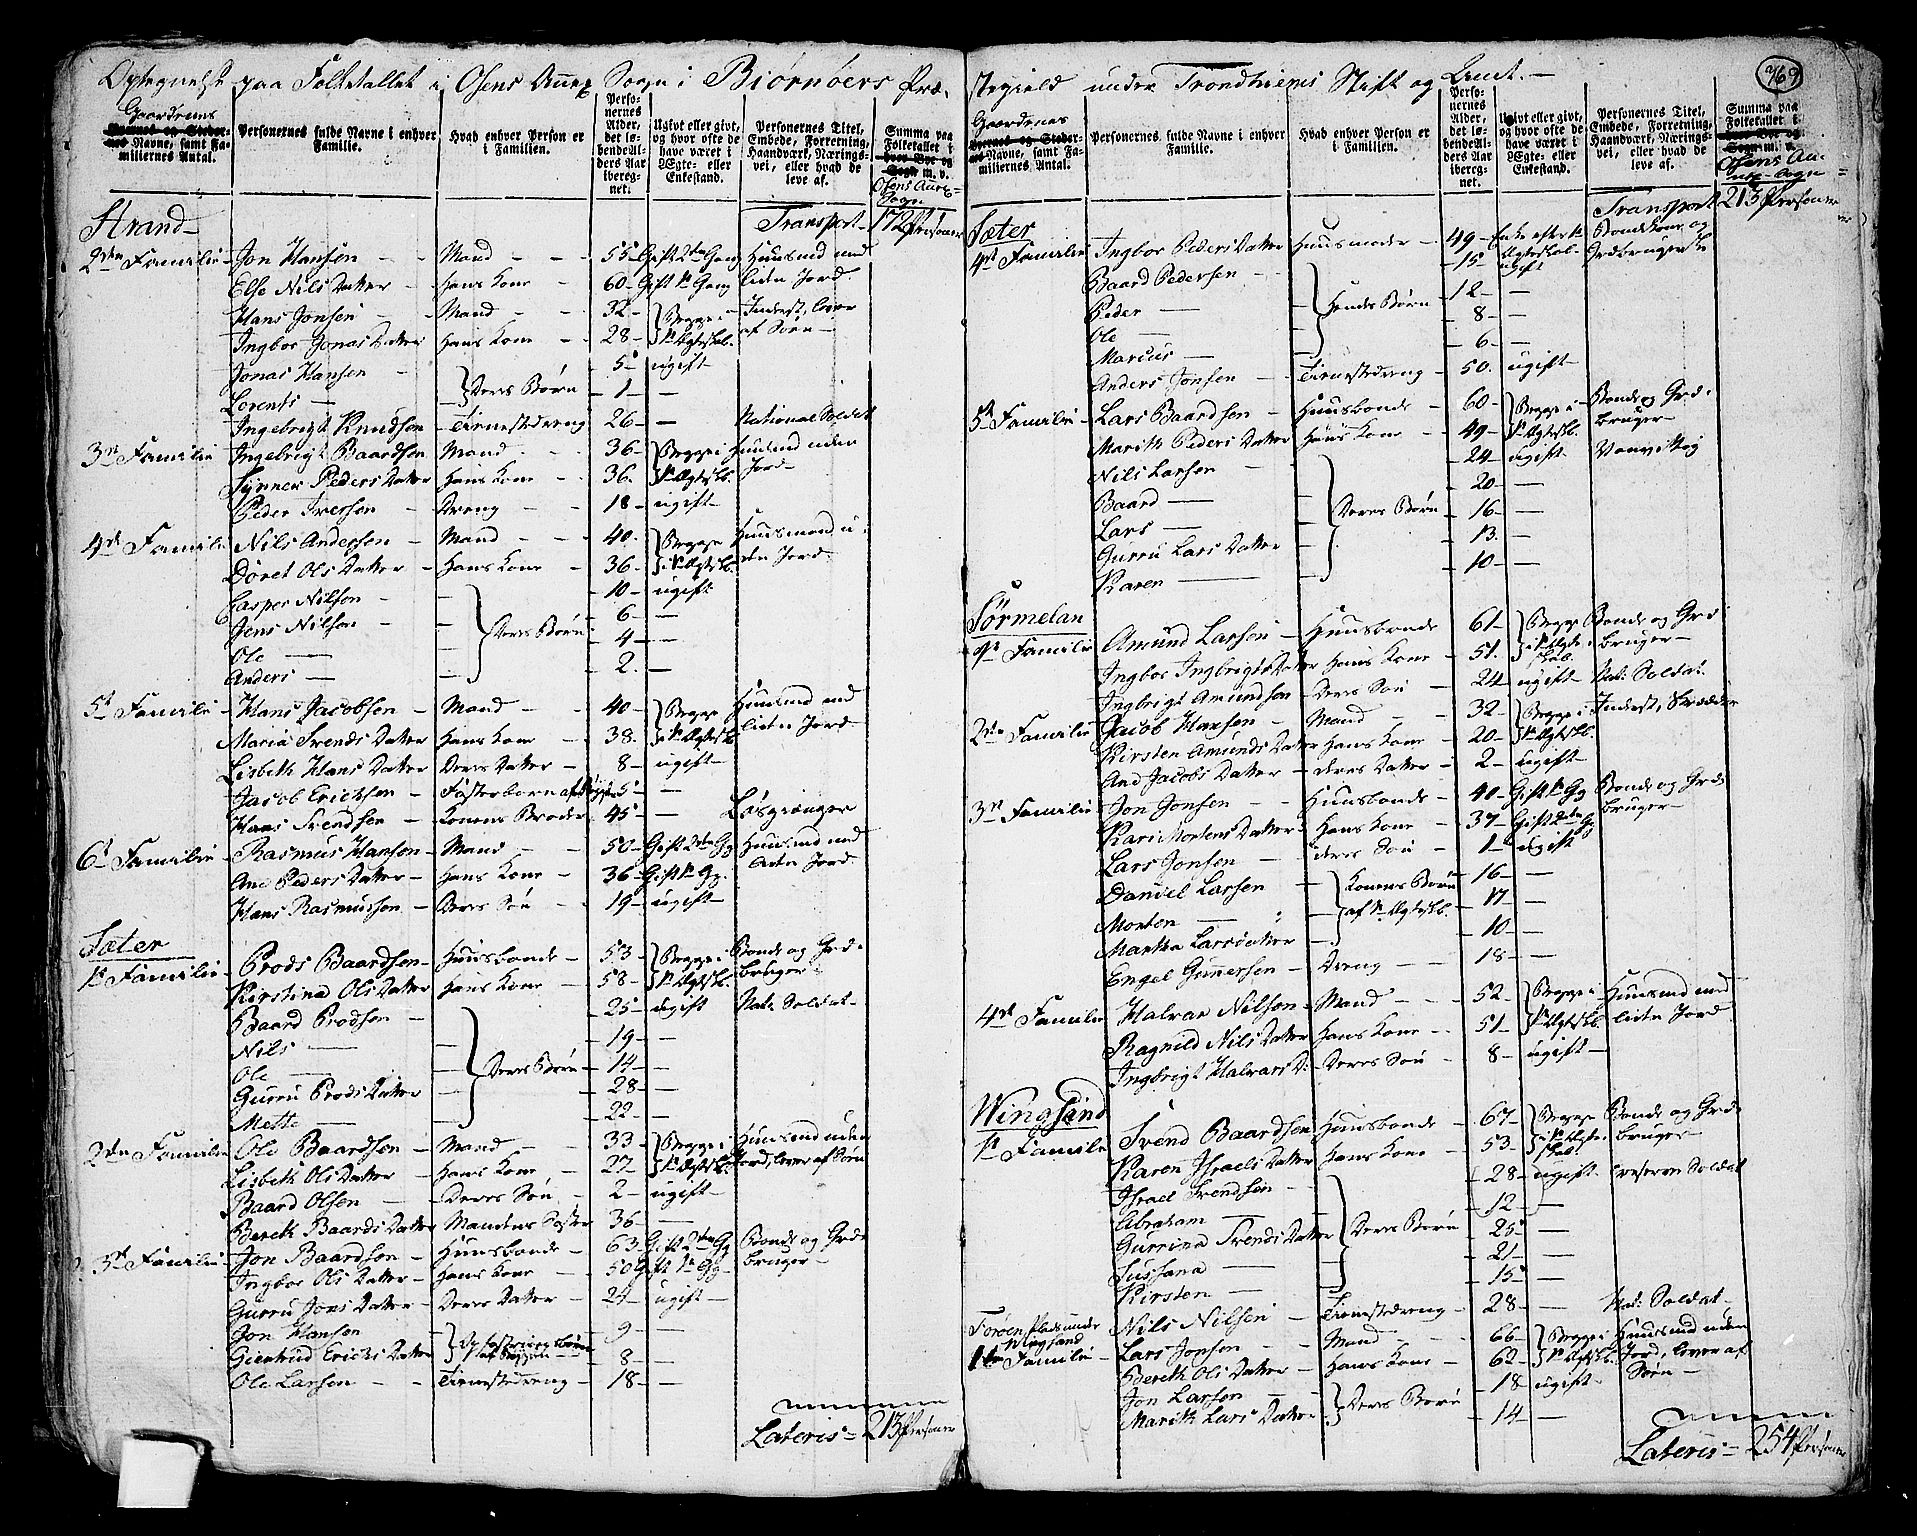 Optegnelse paa Folketallet i Osens Annex Sogn i Biørnøers Præ-
Gaardenes
Navne, samt Familiernes Antal.
Personernes fulde Navne i enhver Familie.
Hvad enhver Person er i Familien.
Personernes Alder, det løbende Alders Aar iberegnet.
Ugivt eller givt, og hvor ofte de have været i Egte- eller Enkestand.
Personernes Titel, Embede, Forretning, Haandværk, Næringsvei, eller hvad de leve af.
Summa paa Folketallet i
Osens Annex Sogn
Strand Transport 172 Personer
2den Familie Jon Hansen Mand 55 Gift 2den Gang Huusmd med
Else Nils Datter Hans Kone 60 Gift 1te Gang liden Jord
Hans Jonsen Mand 32 Begge i Inderst, lever
Ingbor Jonas Datter Hans Kone 28 1te Ægteskab af Søen
Jonas Hansen Deres Børn 5 ugift
Lorents — 1 —
Ingebrigt Knudsen Tienestedreng 26 — National Soldat
3die Familie Ingebrigt Baardsen Mand 36 Begge i Huusmd uden
Synnev Peders Datter Hans Kone 36 1te Ægteskb. Jord
Peder Iversen Dreng 18 ugift
4de Familie Nils Andersen Mand 40 Begge Huusmand u-
Døret Ols Datter Hans Kone 36 i 1te Ægteskb. den Jord
Casper Nilsen 10 ugift
Jens Nilsen Deres Børn 6 —
Ole — 4 —
Anders — 2 —
5te Familie Hans Jacobsen Mand 40 Begge Huusmd med
Maria Svends Datter Hans Kone 38 i 1te Ægteskb liden Jord
Lisbeth Hans Datter Deres Datter 8 ugift
Jacob Ericksen Fosterbarn af 5 —
Hans Svendsen Konens Broder 45 — Løsgiænger
6te Familie Rasmus Hansen Mand 50 Gift 2den Gg Huusmd med
Ane Peders Datter Hans Kone 36 Gift 1te Gg. liden Jord
Hans Rasmussen Deres Søn 19 ugift
Sæter
1te Familie Brods Baardsen Huusbonde 53 Begge i Bonde og Grd-
Kirstina Ols Datter Hans Kone 58 1te Ægteskb. bruger
Baard Brodsen 25 ugift Nat: Soldat
Nils — 19 —
Ole — Deres Børn 14 —
Gurru Brods Datter 28 —
Mette — 22 —
2den Familie Ole Baardsen Mand 33 Begge i Huusmd uden
Lisbeth Ols Datter Hans Kone 27 1te Ægteskb. Jord, lever af Søen
Baard Olsen Deres Søn 2 ugift
Bereth Baards Datter Mandens Søster 36 —
3die Familie Jon Baardsen Huusbonde 63 Gift 2den Gg Bonde og Grd-
Ingbor Ols Datter Hans Kone 50 Gift 1te Gg bruger
Gurru Jons Datter Deres Datter 24 ugift
Jon Hansen Opfostrings børn 9 —
Giertrud Ericks Datter 8 —
Ole Larsen Tienestedreng 18 —
Lateris 213 Personer
stegield under Trondhiems Stift og Amt. 769
Gaardenes
Navne, samt Familiernes Antal.
Personernes fulde Navne i enhver Familie.
Hvad enhver Person er i Familien.
Personernes Alder, det løbende Alders Aar iberegnet.
Ugivt eller givt, og hvor ofte de have været i Egte- eller Enkestand.
Personernes Titel, Embede, Forretning, Næringsvei, eller hvad de leve af.
Summa paa Folketallet i
Osens Annex Sogn
Sæter Transport 213 Personer
4de Familie Ingbor Peders Datter Huusmoder 49 Enke efter 1te Bondekone og
Baard Pedersen 15 Ægteskab ugift Jordbrugerske
Peder — Hendes Børn 12 —
Ole — 8 —
Marcus — 6 —
Anders Jonsen Tienestedreng 50 ugift
5te Familie Lars Baardsen Huusbonde 60 Begge i Bonde og Grd-
Marith Peders Datter Hans Kone 49 1te Ægteskb. bruger
Nils Larsen 24 ugift Vanvittig
Baard — 20 —
Lars — Deres Børn 16 —
Gurru Lars Datter 13 —
Karen — 10 —
Sørmelan
1te Familie Amund Larsen Huusbonde 61 Begge Bonde og Grd-
Ingbor Ingbrigts Datter Hans Kone 51 i 1te Ægteskab. bruger
Ingbrigt Amundsen Deres Søn 24 ugift Nat: Soldat
2den Familie Jacob Hansen Mand 32 Begge i Inderst, Skrædder
Kirsten Amunds Datter Hans Kone 20 1te Ægteskb.
Ane Jacobs Datter deres Datter 2 ugift
3die Familie Jon Jonsen Huusbonde 40 Gift 1te Gg Bonde og Grd-
Kari Mortens Datter Hans Kone 37 Gift 2den G. bruger
Lars Jonsen deres Søn 1 ugift
Daniel Larsen Konens Børn 16 —
Morten — af 1te Ægteskb. 17 —
Martha Larsdatter 10 —
Engel Gunnersen Dreng 18 —
4de Familie Halvar Nilsen Mand 52 Begge i Huusmd med
Ragnild Nils Datter Hans Kone 51 1te Ægteskb. liden Jord
Ingbrigt Halvars D: Deres Søn 8 ugift
Wingsand
1te Familie Svend Baardsen Huusbonde 67 Begge Bonde og Grd-
Karen Israels Datter Hans Kone 53 i 1te Ægteskab. bruger
Israel Svendsen 28 ugift reserve Soldat
Abraham — 12 —
Gurrina Svends Datter Deres Børn 25 —
Sussana — 21 —
Kirsten — 15 —
Nils Nilsen Tienestedreng 28 — Nat: Soldat
Forøen Plads under Wingsand
1te Familie Lars Jonsen Mand 66 Begge i Huusmd uden
Bereth Ols Datter Hans Kone 62 1te Ægteskb. Jord, lever af
Jon Larsen Deres Børn 18 ugift Søen
Marith Lars Datter 14 —
Lateris 254 Personer